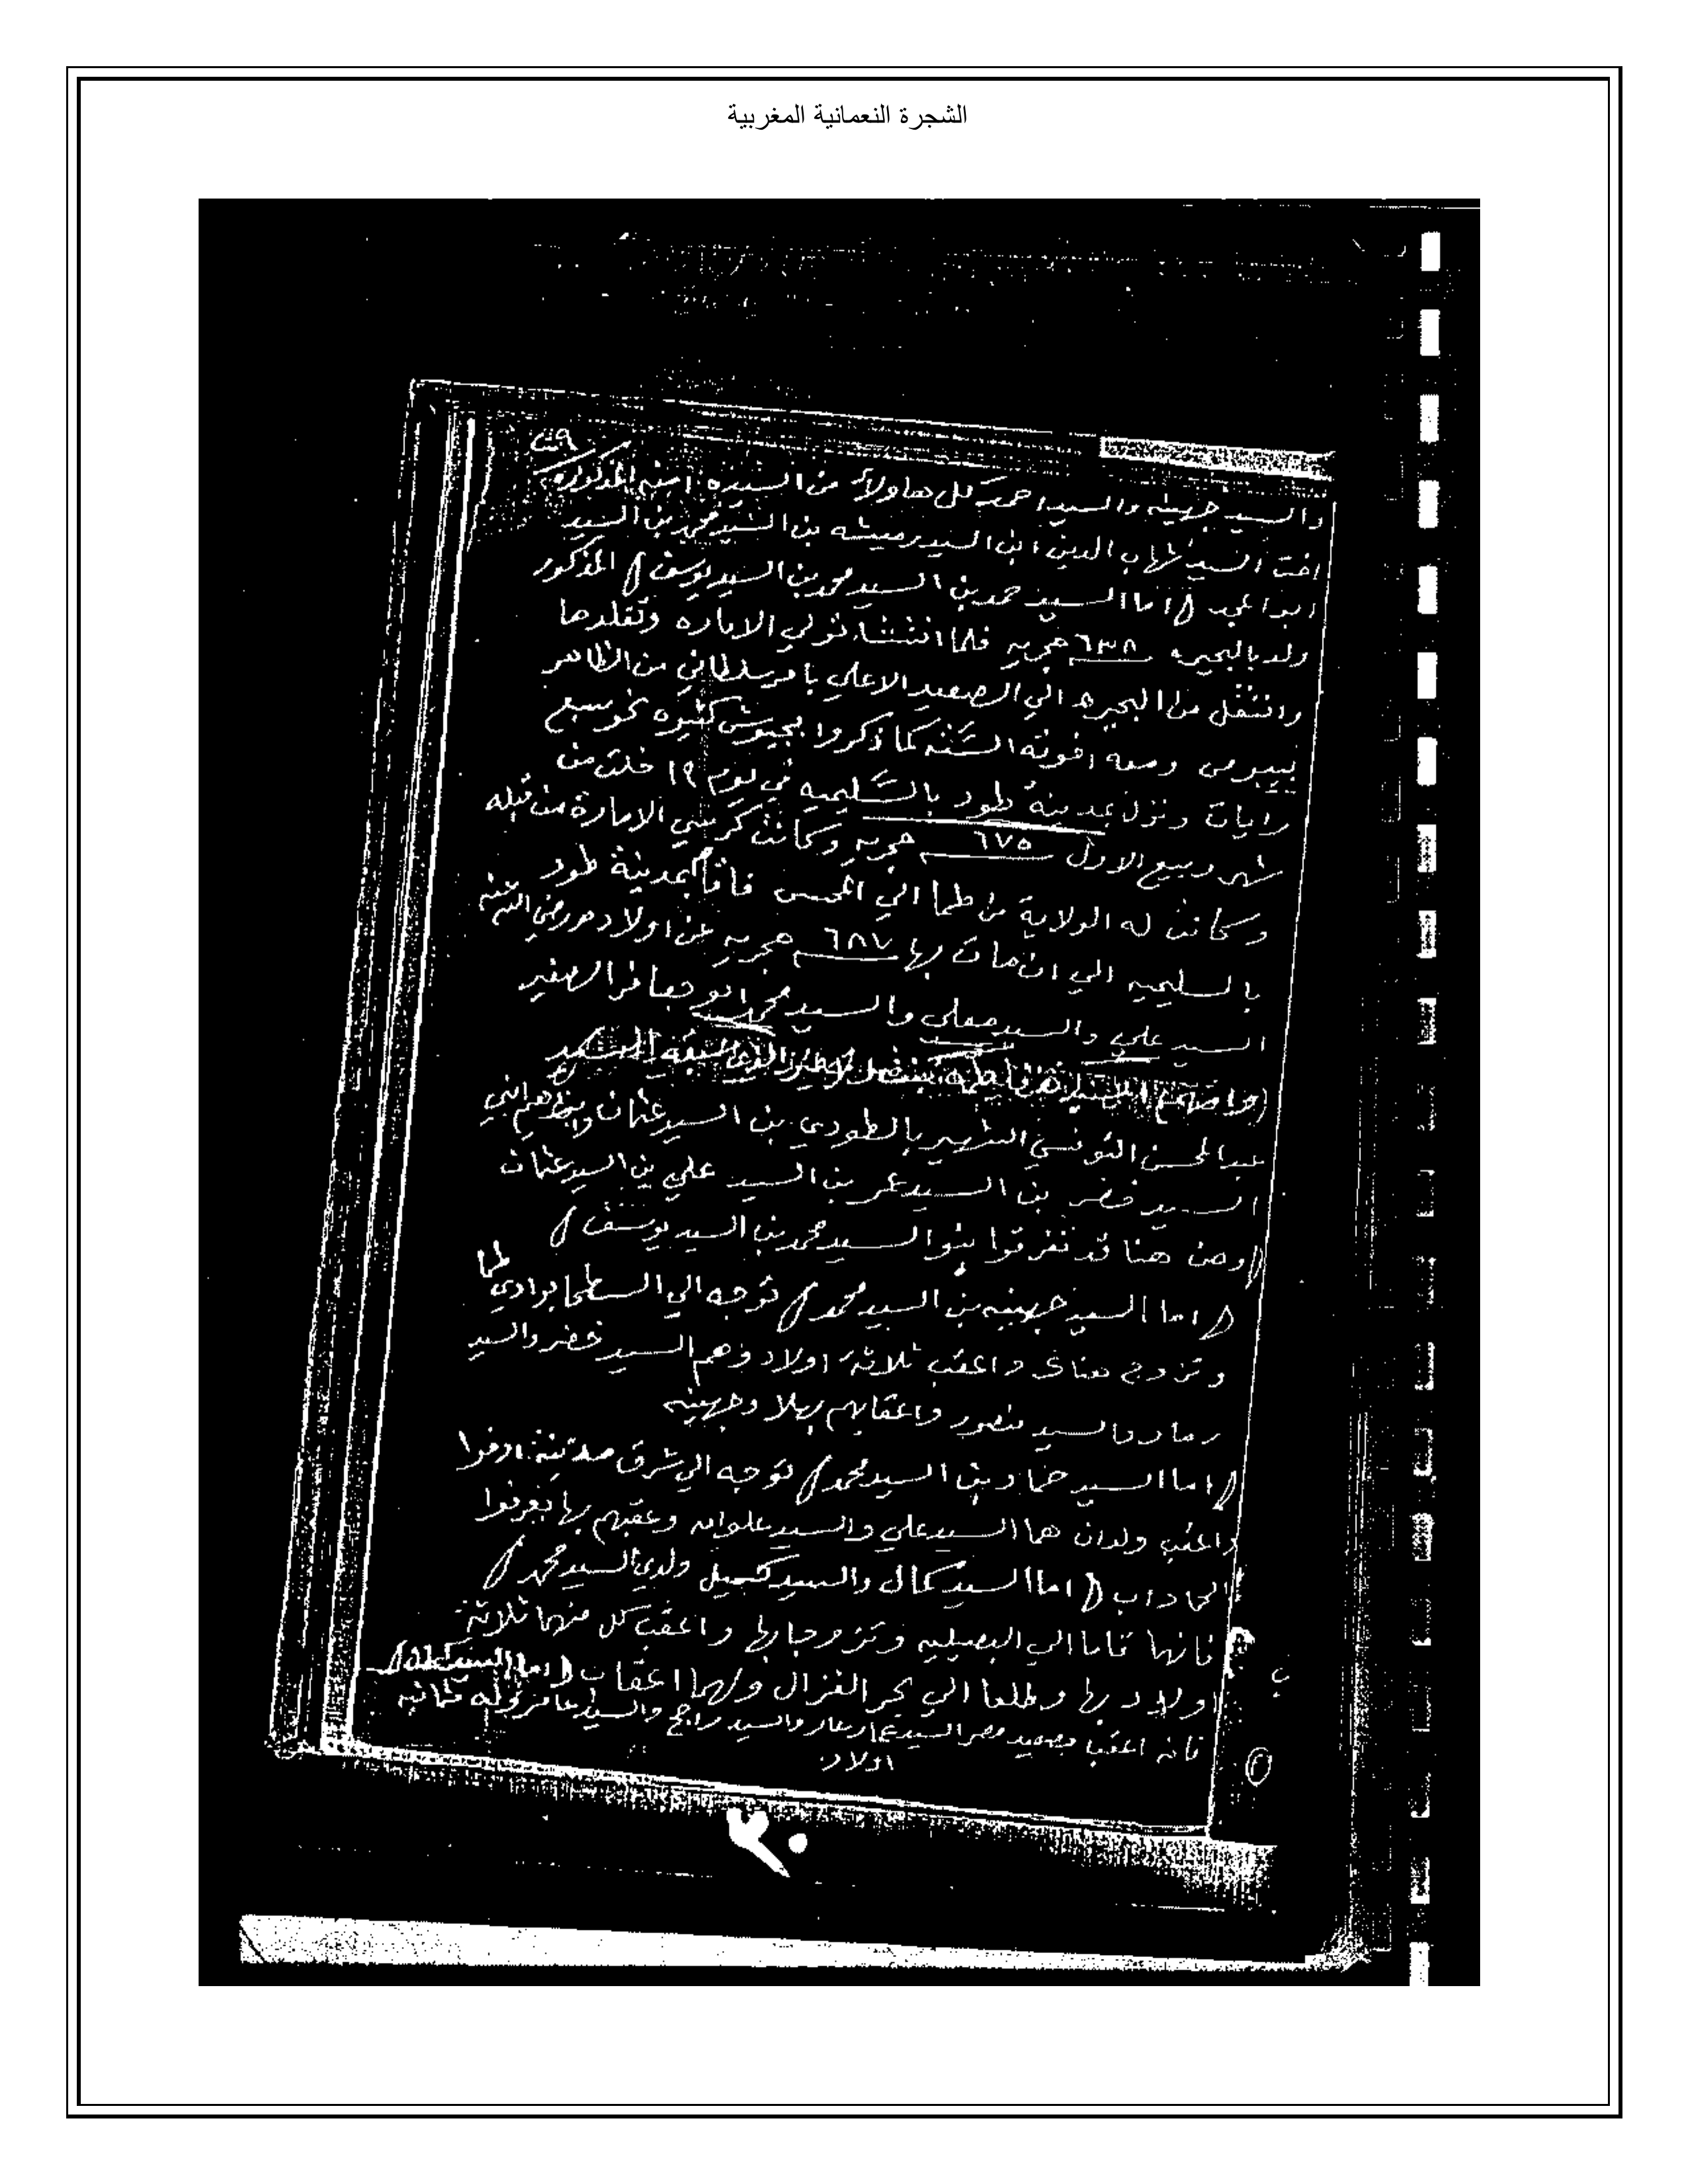 الشجرة النعمانية المغربية
والسيد جهينه والسيد احمد كل هاولاء من السيده امنه المذكوره
اخت السيد شهاب الدين ابن السيد رميشه بن السيد محمد بن السيد
ابوا ( اما السيد حمد بن السيد محمد بن السيد يوسف ) المذكور
ولد بالبحيره ٦٣٨ هجريه فلما انتشا تولي الاماره وتقلدها
وانتقل من البحيره الي الصعيد الاعلي بامر سلطاني من الظاهر
بيبرس ومعه اخوته السته كما ذكروا بجيوش كثيره نحو سبع
رايات ونزل بمدينة طود بالسليميه في يوم ١٢ خلت من
شهر ربيع الاول ٦٧٥ هجريه وكانت كرسي الامارة من قبله
وكانت له الولاية من طما الي فاقام بمدينة طود
بالسليميه الي ان مات بها ٦٨٧ هجريه عن اولاده رضي الله عنه
السيد علي والسيد معلي والسيد محمد ابو جعافر الصغير
عبد المحسن التونسي الشهير بالطودي بن السيد عثمان
السيد خضر بن السيد عمر بن السيد علي بن السيد عثمان
( ومن هنا قد تفرقوا بنوا السيد محمد بن السيد يوسف )
( اما السيد جهينه بن السيد محمد ) توجه الي السطحا بوادي طما
وتزوج هناك واعقب ثلاثة اولاد وهم السيد خضر والسيد
والسيد منصور واعقابهم بهلا وجهينه
( اما السيد حماد بن السيد محمد ) توجه الي شرق مدينة ادفوا
واعقب ولدان هما السيد علي والسيد علوان وعقبهم بها يعرفوا
( اما السيد كمال والسيد كميل ولدي السيد محمد )
فانهما قاما الي البصيليه وتزوجا بها واعقب كل منهما ثلاثة
اولاد بها وطلعا الي بحر الغزال ولهما اعقاب ( اما السيد
فانه اعقب بصعيد مصر السيد عمار والسيد راجح والسيد عامر وله ثمانيه
اولاد